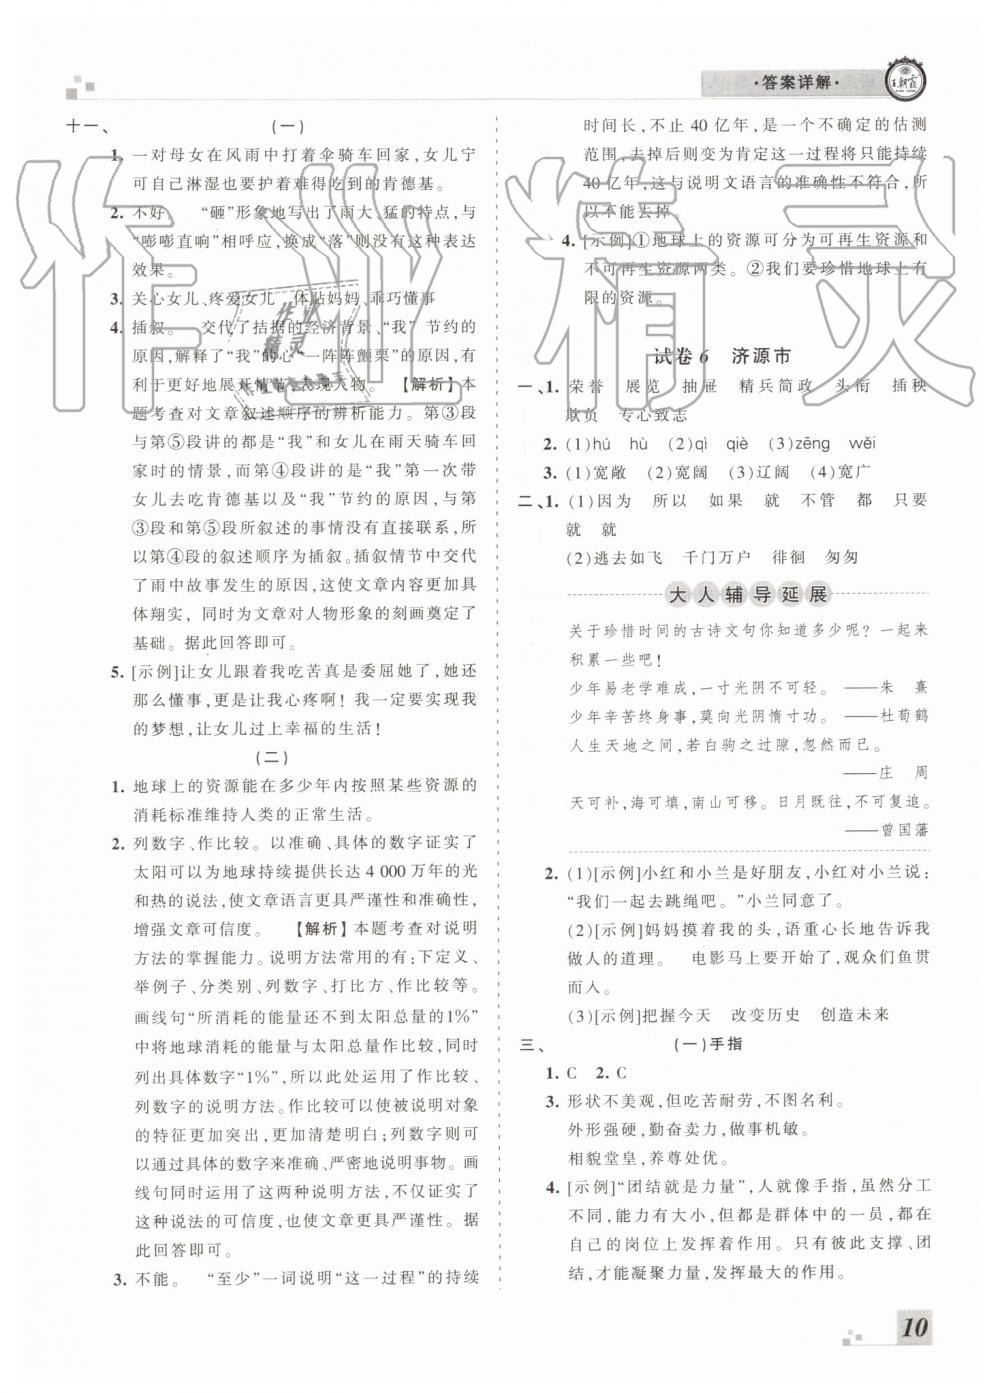 ·答案详解·
王朝霞
十一、 (一)
1. 一对母女在风雨中打着伞骑车回家,女儿宁
可自己淋湿也要护着难得吃到的肯德基。
2. 不好。 “砸”形象地写出了雨大、猛的特点,与
“嘭嘭直响”相呼应,换成“落”则没有这种表达
效果。
3. 关心女儿、疼爱女儿 体贴妈妈、乖巧懂事
4. 插叙。 交代了拮据的经济背景、“我”节约的
原因,解释了“我”的心“一阵阵颤栗”的原因,有
利于更好地展开情节、表现人物。 【解析】本
题考查对文章叙述顺序的辨析能力。第③段
与第⑤段讲的是“我”和女儿在雨天骑车回
家时的情景,而第④段讲的是“我”第一次带
女儿去吃肯德基以及“我”节约的原因,与第
③段和第⑤段所叙述的事情没有直接联系,所
以第④段的叙述顺序为插叙。插叙情节中交代
了雨中故事发生的原因,这使文章更加具
体翔实,同时为文章对人物形象的刻画奠定了
基础。据此回答即可。
5. [示例]让女儿跟着我吃苦真是委屈她了,她还
那么懂事,更是让我心疼啊！我一定要实现我
的梦想,让女儿过上幸福的生活！
(二)
1. 地球上的资源能在多少年内按照某些资源的
消耗标准维持人类的正常生活。
2. 列数字、作比较。以准确、具体的数字证实了
太阳可以为地球持续提供长达 4 000 万年的光
和热的说法,使文章语言更具严谨性和准确性,
增强文章可信度。 【解析】本题考查对说明
方法的掌握能力。说明方法常用的有:下定义、
举例子、分类别、列数字、打比方、作比较等。
画线句“所消耗的能量还不到太阳总量的1%”
中将地球消耗的能量与太阳总量作比较,同时
列出具体数字“1%”,所以此处运用了作比较、
列数字的说明方法。作比较可以使被说明对象
的特征更加突出,更加清楚明白;列数字则可
以通过具体的数字来准确、严密地说明事物。画
线句同时运用了这两种说明方法,不仅证实了
这种说法的可信度,也使文章更具严谨性。据
此回答即可。
3. 不能。 “至少”一词说明“这一过程”的持续
时间长,不止 40 亿年,是一个不确定的估测
范围,去掉后则变为肯定这一过程将只能持续
40 亿年,这与说明文语言的准确性不符合,所
以不能去掉。
4. [示例]①地球上的资源可分为可再生资源和
不可再生资源两类。②我们要珍惜地球上有
限的资源。
试卷 6 济源市
一、1. 荣誉 展览 抽屉 精兵简政 头衔 插秧
欺负 专心致志
2. (1)hú hù (2)qì qiè (3)zēng wěi
3. (1)宽敞 (2)宽阔 (3)辽阔 (4)宽广
二、1. (1)因为 所以 如果 就 不管 都 只要
就 就
(2)逃去如飞 千门万户 徘徊 匆匆
大人辅导延展
关于珍惜时间的古诗文句你知道多少呢？一起来
积累一些吧！
少年易老学难成,一寸光阴不可轻。 ——朱 熹
少年辛苦终身事,莫向光阴惰寸功。 ——杜荀鹤
人生天地之间,若白驹之过隙,忽然而已。
——庄 周
天可补,海可填,南山可移。日月既往,不可复追。
——曾国藩
2. (1)[示例]小红和小兰是好朋友,小红对小兰说:
“我们一起去跳绳吧。”小兰同意了。
(2)[示例]妈妈摸着我的头,语重心长地告诉我
做人的道理。 电影马上要开始了,观众们鱼贯
而人。
(3)[示例]把握今天 改变历史 创造未来
三、 (一)手指
1. C 2. C
3. 形状不美观,但吃苦耐劳,不图名利。
外形强硬,勤奋卖力,做事机敏。
相貌堂皇,养尊处优。
4. [示例]“团结就是力量”,人就像手指,虽然分工
不同,能力有大小,但都是群体中的一员,都在
自己的岗位上发挥着作用。只有彼此支撑、团
结,才能凝聚力量,发挥最大的作用。
10
作业精灵